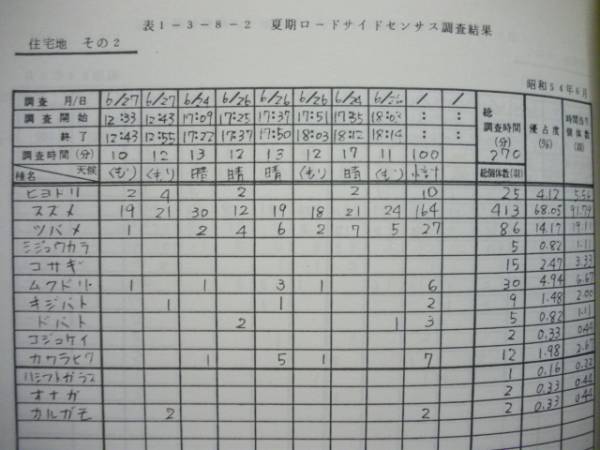 表1-3-8-2 夏期ロードサイドセンサス調査結果
住宅地 その2
昭和54年6月
調査 月/日 6/27 6/27 6/24 6/26 6/26 6/26 6/24 6/26 / / 総調査時間(分) 270 優占度(%) 時間当り個体数(羽)
調査 開始 12:33 12:43 17:09 17:25 17:37 17:51 17:55 18:03 : :
終了 12:43 12:55 17:22 17:37 17:50 18:03 18:12 18:14 : :
調査時間(分) 10 12 13 12 13 12 17 11 100
種名 天候 くもり くもり 晴 晴 晴 くもり 晴 くもり 小計 総個体数(羽)
ヒヨドリ 2 4 2 2 10 25 4.12 5.56
スズメ 19 21 30 12 19 18 21 24 164 413 68.05 91.78
ツバメ 1 2 4 6 2 7 5 27 86 14.17 19.11
シジュウカラ 5 0.82 1.11
コサギ 15 2.47 3.33
ムクドリ 1 1 3 1 6 30 4.94 6.67
キジバト 1 1 2 9 1.48 2.00
ドバト 2 1 3 5 0.82 1.11
コジュケイ 2 0.33 0.44
カワラヒワ 1 5 1 7 12 1.98 2.67
ハシブトガラス 1 0.16 0.22
オナガ 2 0.33 0.44
カルガモ 2 2 2 0.33 0.44